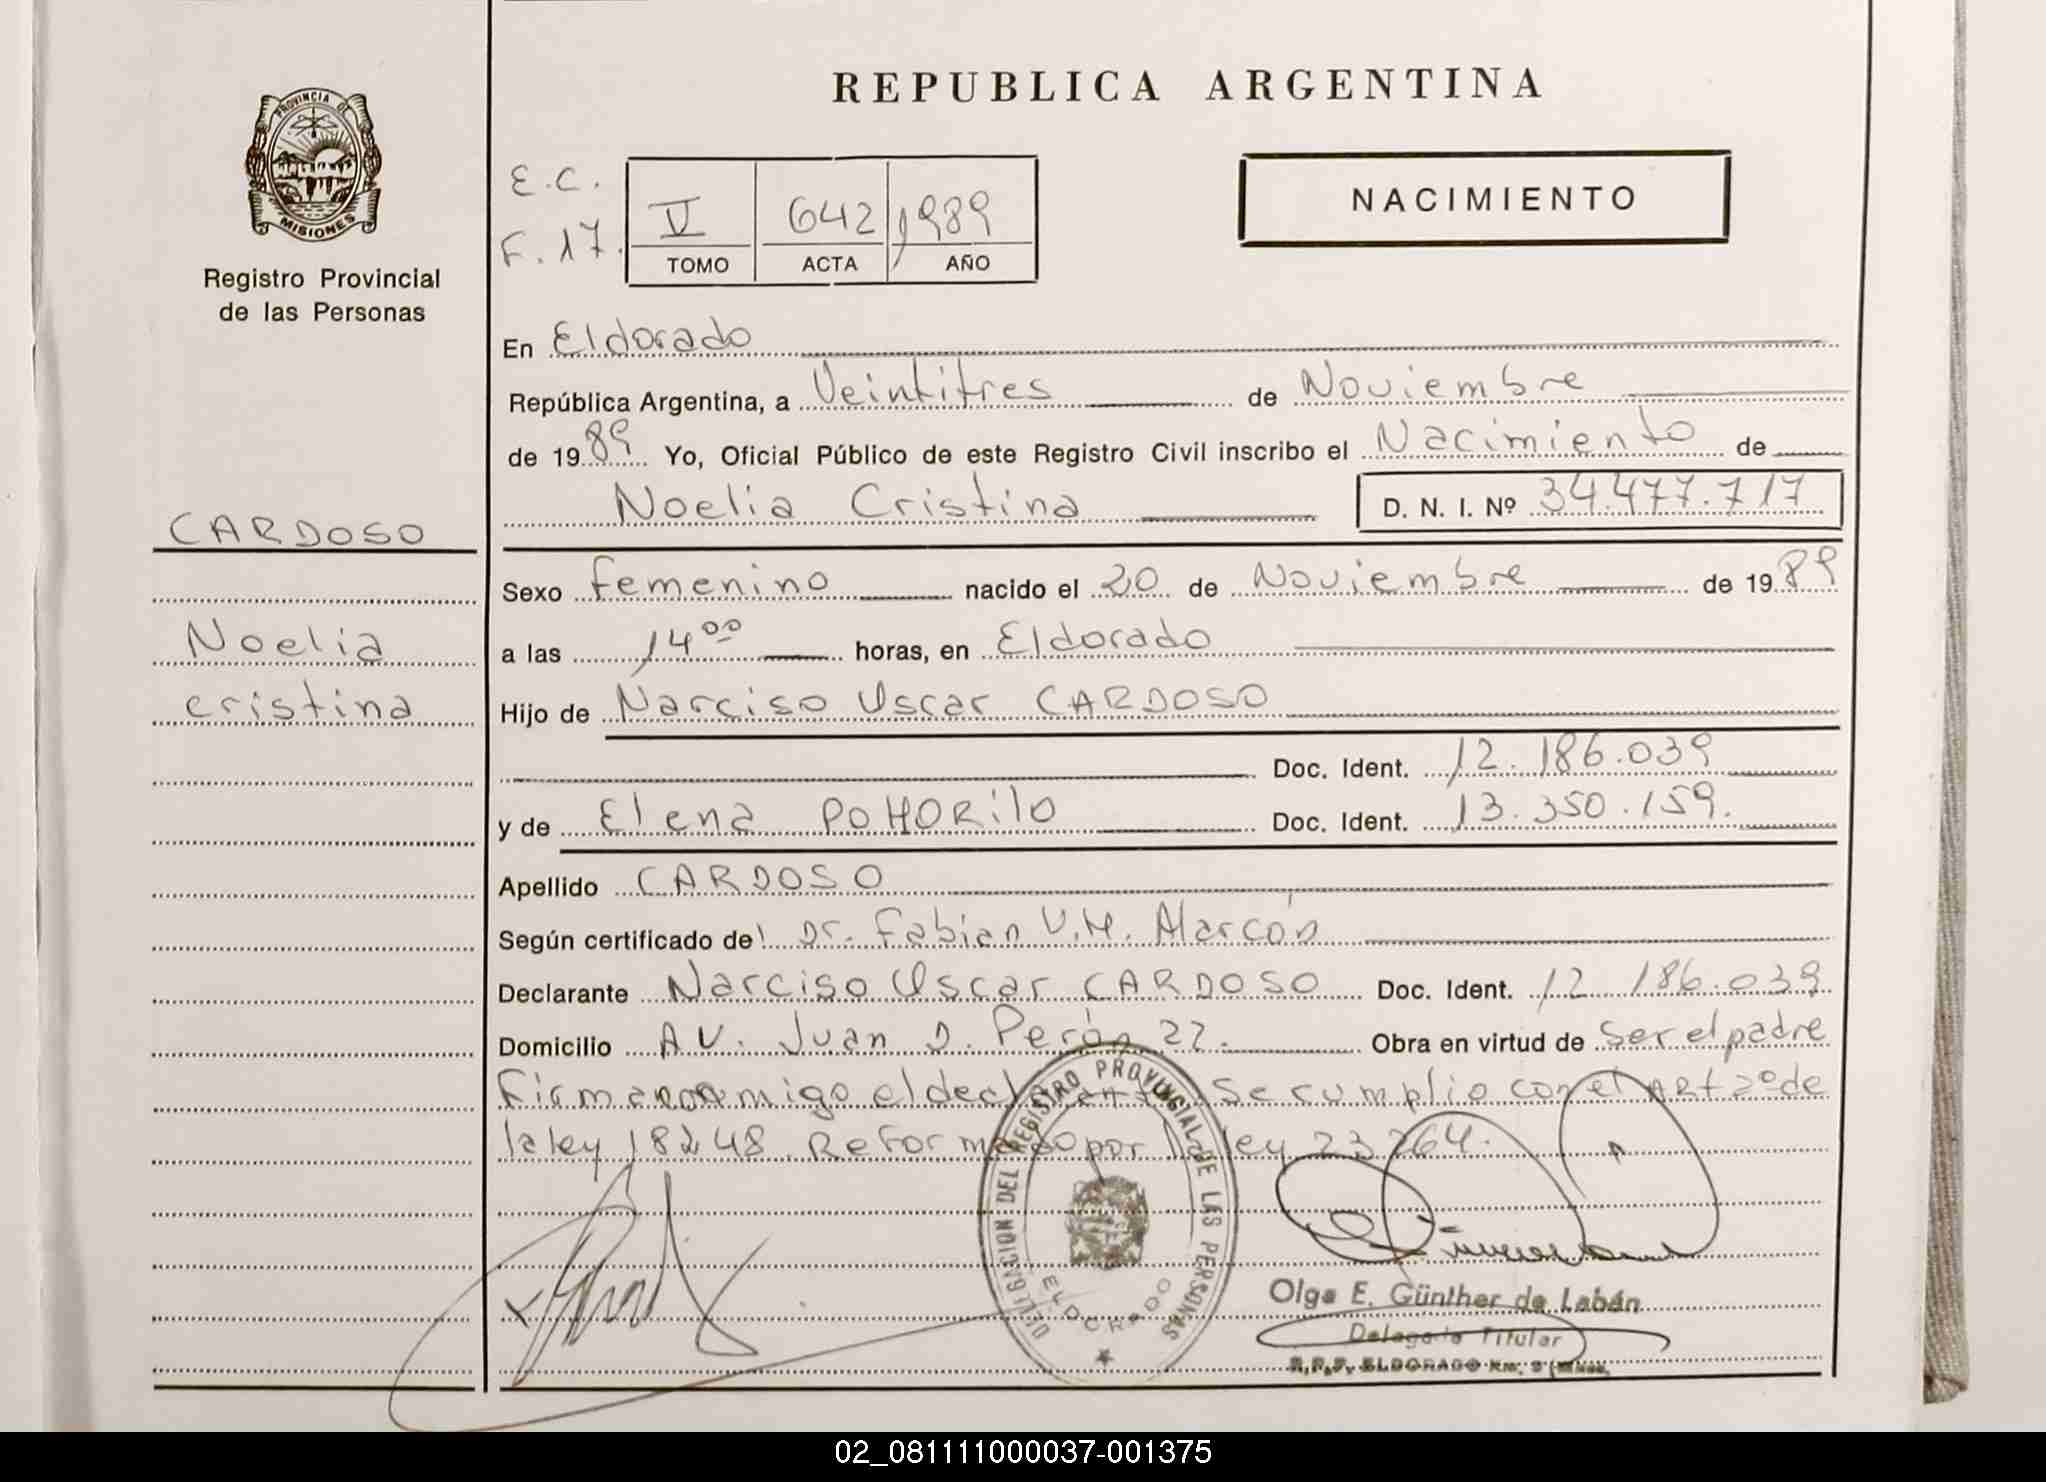 PROVINCIA DE
MISIONES
Registro Provincial
de las Personas
CARDOSO
Noelia
cristina
REPUBLICA ARGENTINA
E.C.
F. 17.
V 642 1989
TOMO ACTA AÑO
NACIMIENTO
En Eldorado
República Argentina, a Veintitres de Noviembre
de 1989 Yo, Oficial Público de este Registro Civil inscribo el Nacimiento de
Noelia Cristina D. N. I. Nº 34.477.717
Sexo femenino nacido el 20 de Noviembre de 1989
a las 14 00 horas, en Eldorado
Hijo de Narciso Oscar CARDOSO
Doc. Ident. 12.186.039
y de Elena POHORilo Doc. Ident. 13.350.159.
Apellido CARDOSO
Según certificado del Dr. Fabian V.M. Marcón
Declarante Narciso Oscar CARDOSO Doc. Ident. 12 186.039
Domicilio AV. Juan D. Perón 22. Obra en virtud de ser el padre
Firma conmigo el declarante se cumplio con el ART 2º de
la ley 18248. Reformado por la ley 23264.
DELEGACION DEL REGISTRO PROVINCIAL DE LAS PERSONAS
ELDORADO
Olga E. Günther de Labán
Delegada Titular
R.P.P. ELDORADO Km. 9
02_081111000037-001375